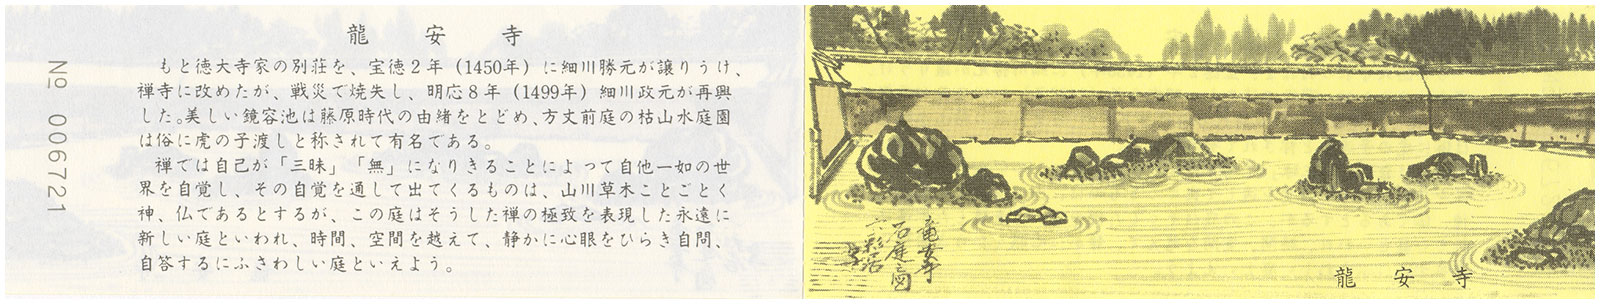 龍安寺
もと徳大寺家の別荘を、宝徳2年（1450年）に細川勝元が譲りうけ、
禅寺に改めたが、戦災で焼失し、明応8年（1499年）細川政元が再興
した。美しい鏡容池は藤原時代の由緒をとどめ、方丈前庭の枯山水庭園
は俗に虎の子渡しと称されて有名である。
禅では自己が「三昧」「無」になりきることによって自他一如の世
界を自覚し、その自覚を通して出てくるものは、山川草木ことごとく
神、仏であるとするが、この庭はそうした禅の極致を表現した永遠に
新しい庭といわれ、時間、空間を越えて、静かに心眼をひらき自問、
自答するにふさわしい庭といえよう。
№ 006721
竜安寺
石庭之図
龍安寺